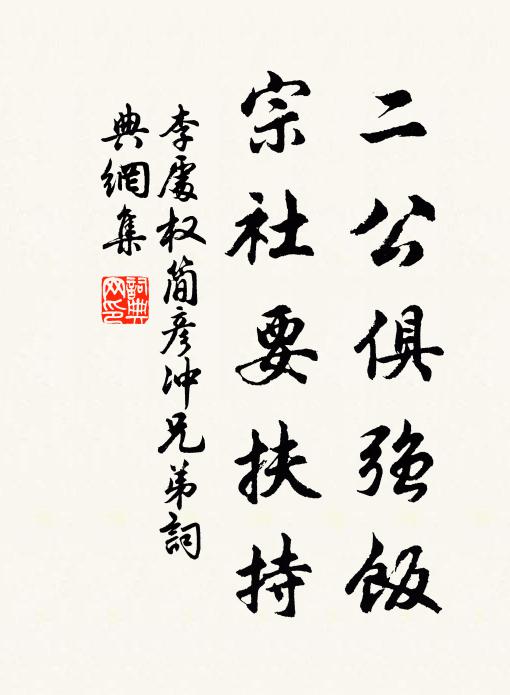 二公俱強飯
宗社要扶持
李處权简彦冲兄弟詞
典網集
詞典网印